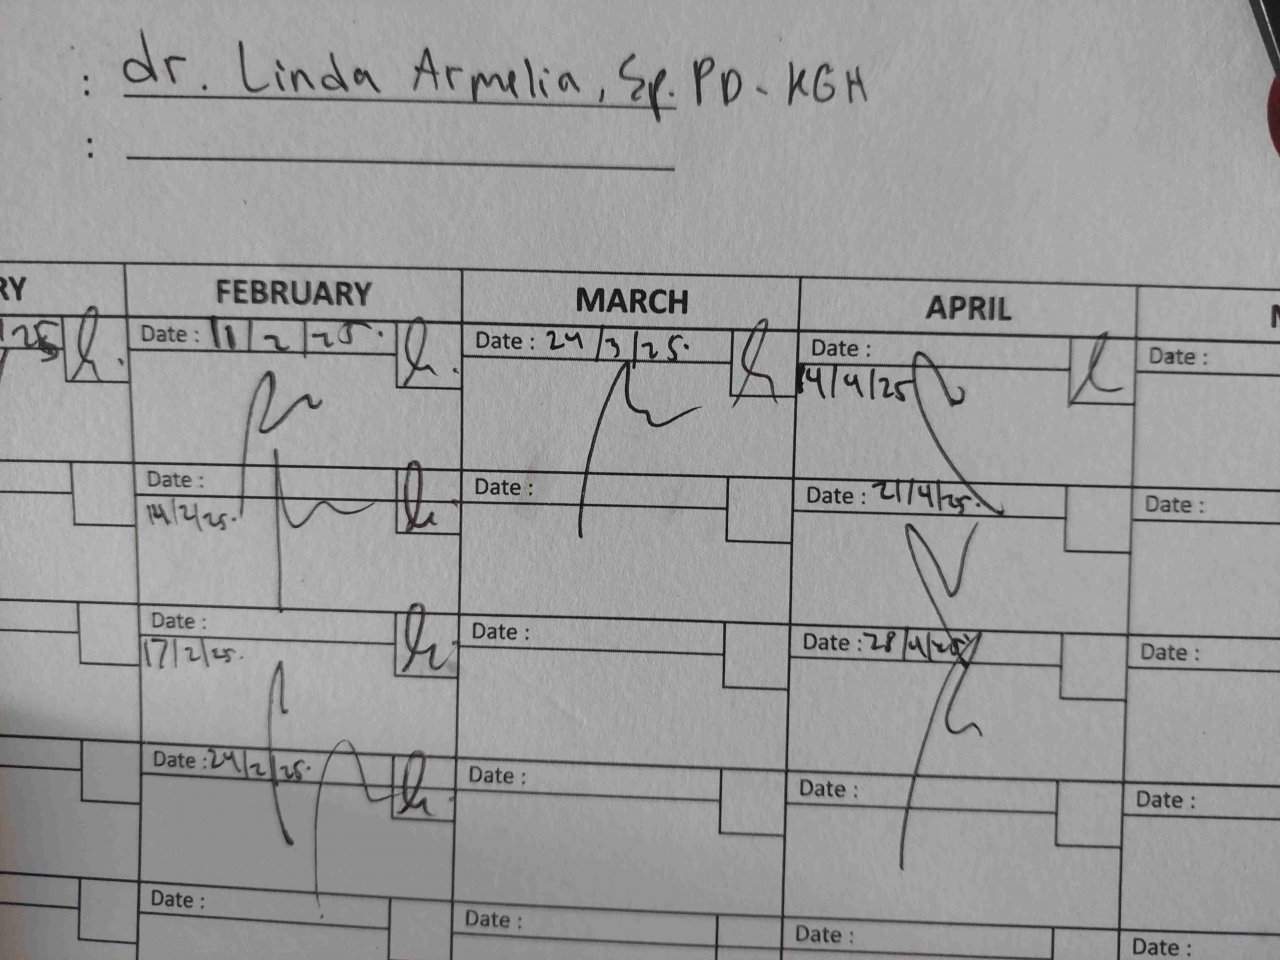 : dr. Linda Armelia, Sp.PD-KGH
:
RY FEBRUARY MARCH APRIL
25 Date : 11/2/25. Date : 24/3/25. Date : 14/4/25 Date :
Date : 14/2/25. Date : Date : 21/4/25. Date :
Date : 17/2/25. Date : Date : 28/4/25 Date :
Date : 24/2/25. Date : Date : Date :
Date : Date : Date : Date :